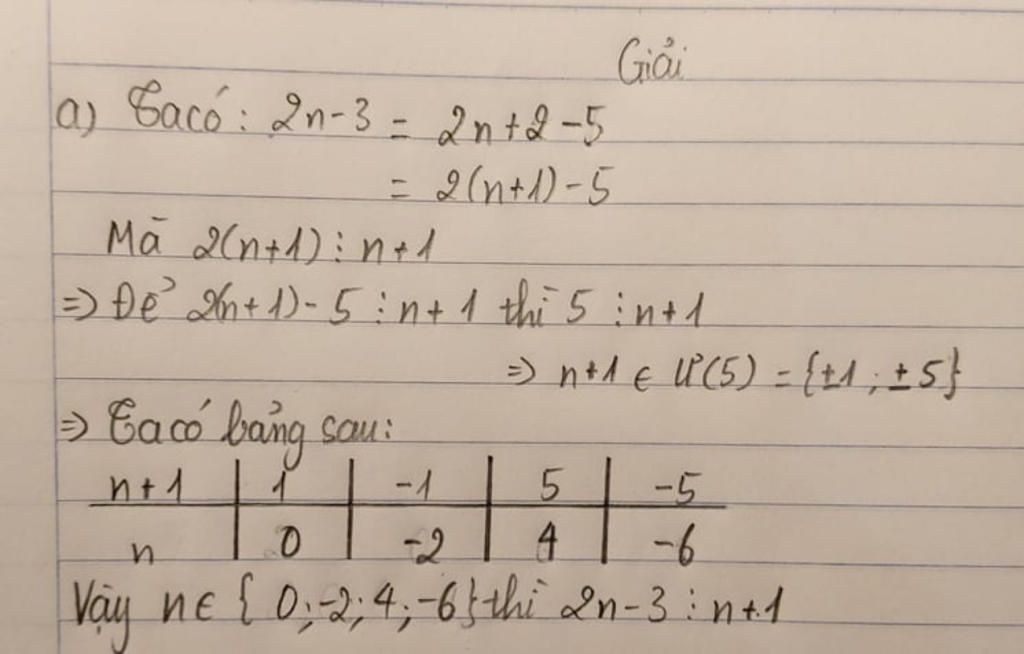 Giải
a) Ta có: 2n-3 = 2n+2-5
= 2(n+1)-5
Mà 2(n+1) ⋮ n+1
=> Để 2(n+1)-5 ⋮ n+1 thì 5 ⋮ n+1
=> n+1 ∈ Ư(5) = {±1; ±5}
=> Ta có bảng sau:
n+1 | 1 | -1 | 5 | -5
n | 0 | -2 | 4 | -6
Vậy n∈ {0;-2;4;-6} thì 2n-3 ⋮ n+1